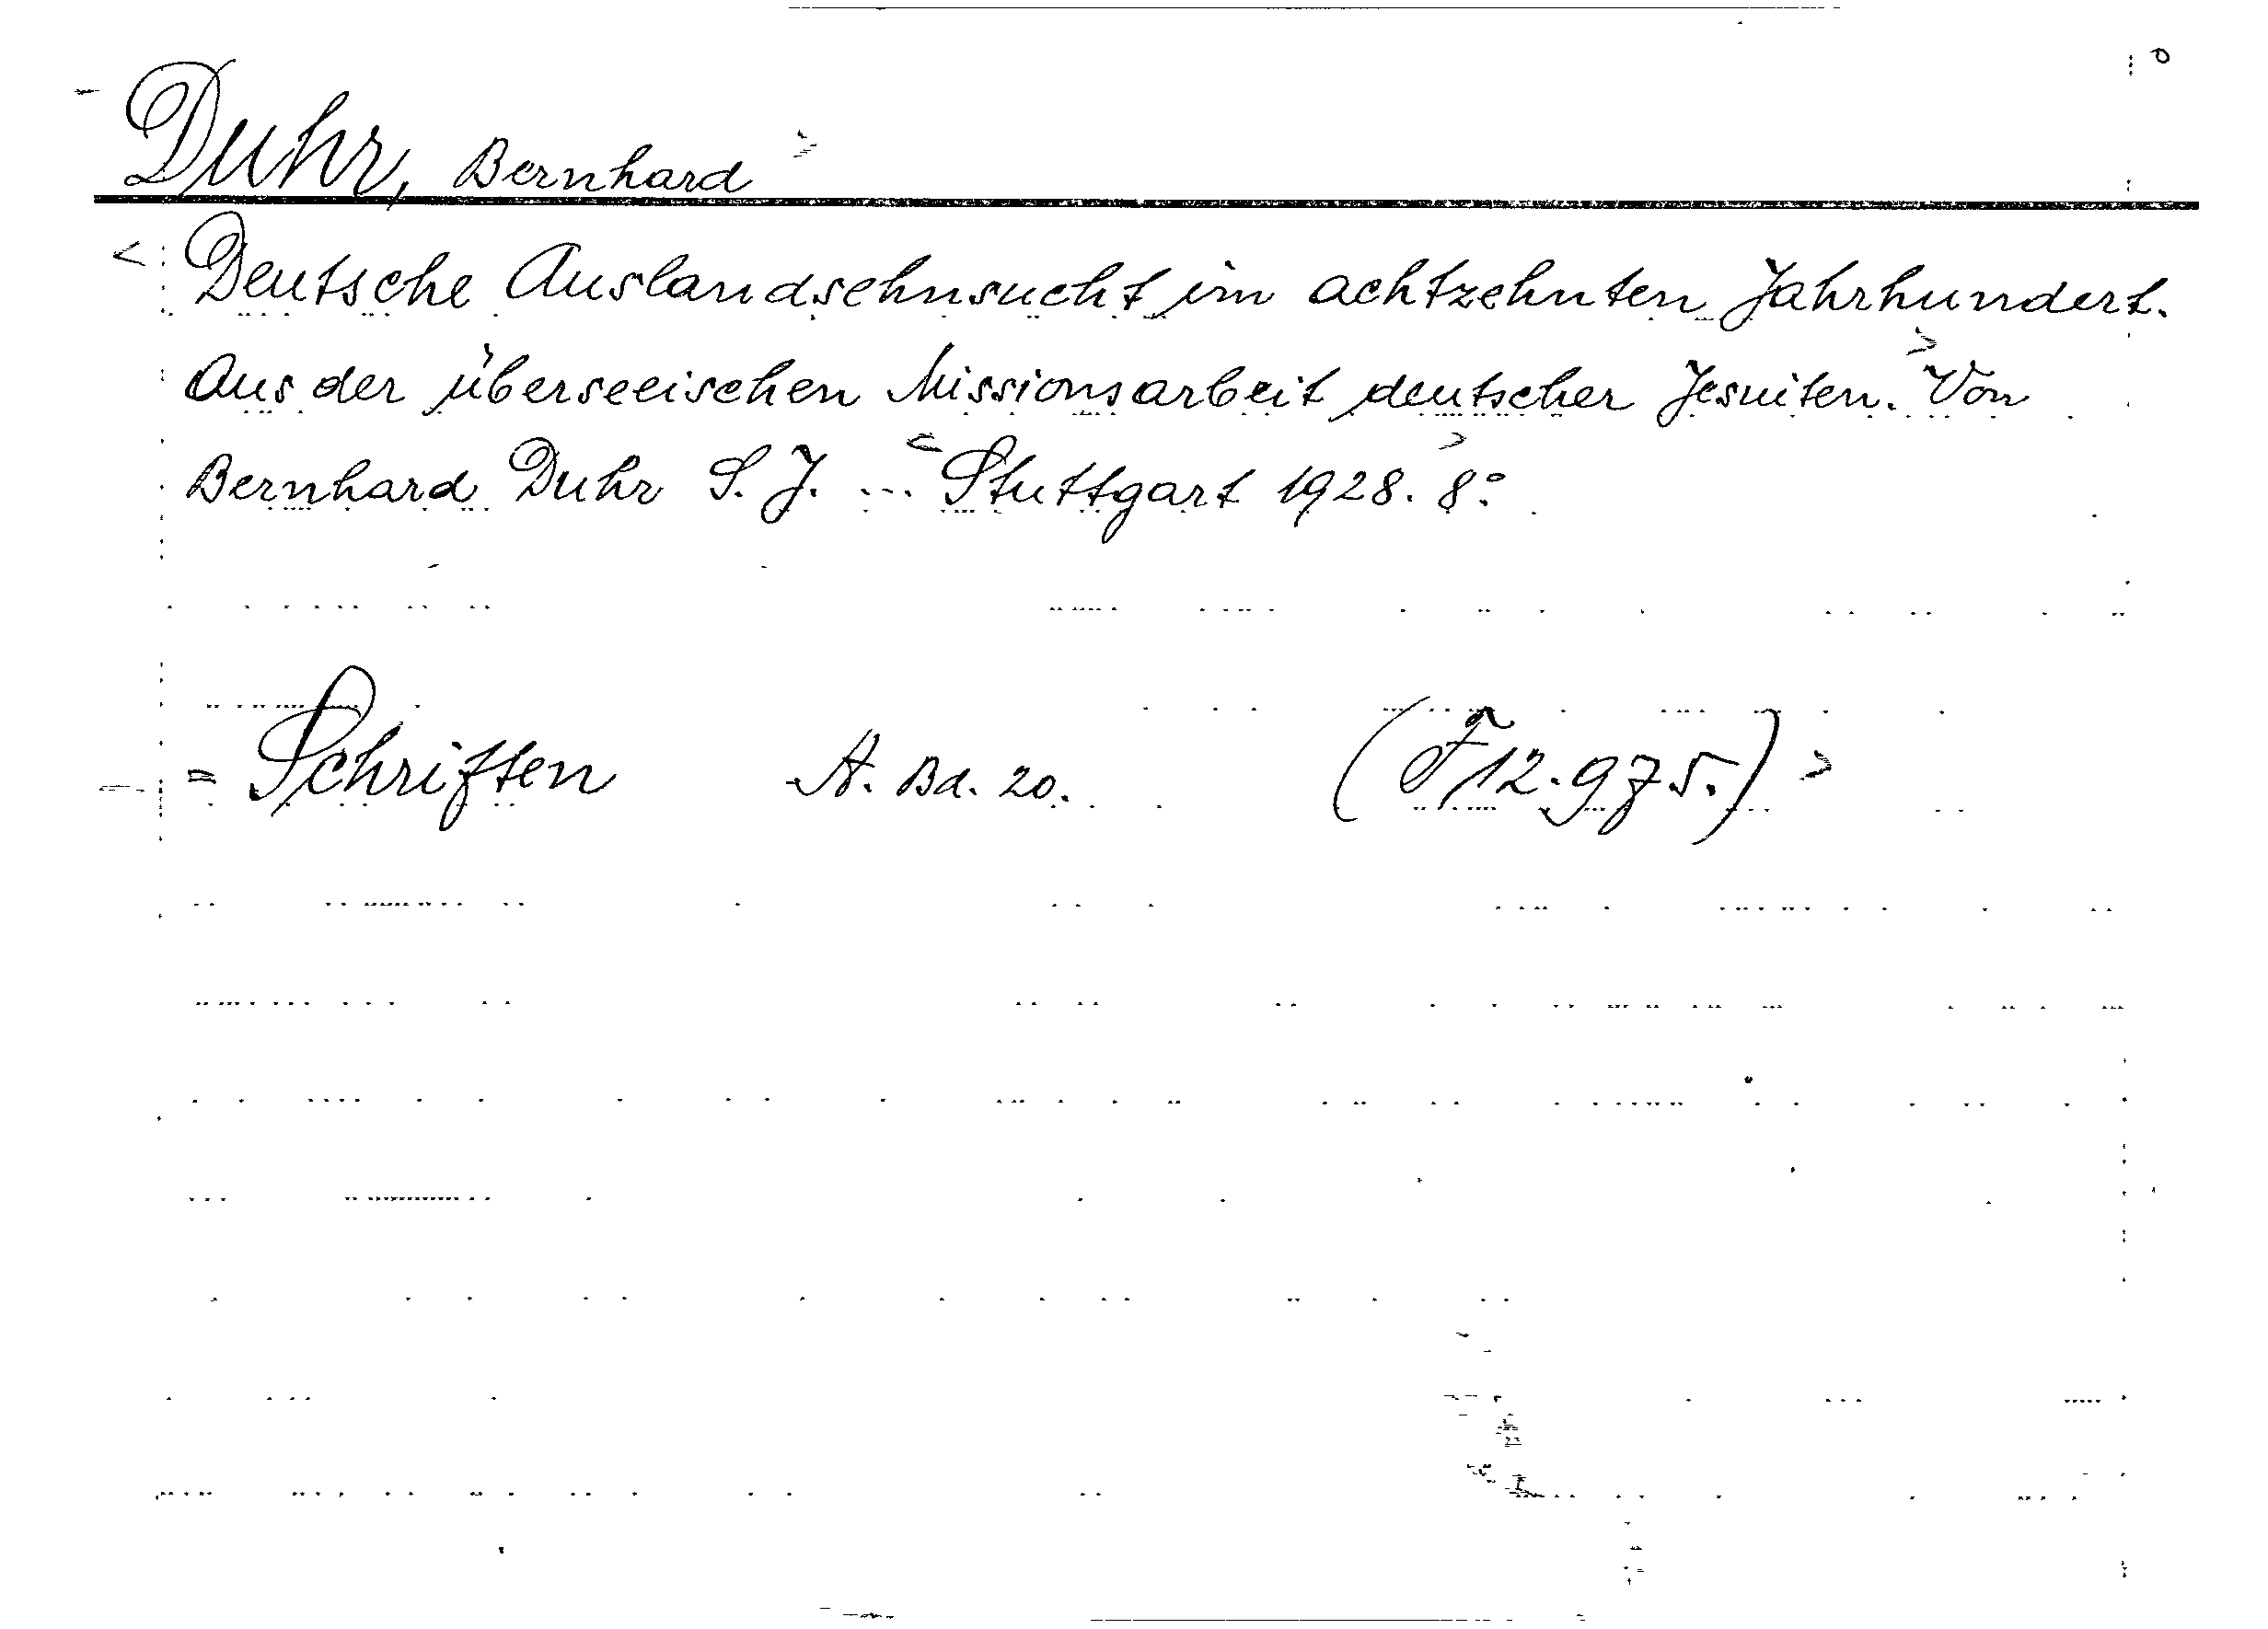 Duhr, Bernhard
Deutsche Auslandsehnsucht im achtzehnten Jahrhundert.
Aus der überseeischen Missionsarbeit deutscher Jesuiten. Von
Bernhard Duhr S. J. ... Stuttgart 1928. 8°
= Schriften A. Bd. 20. (F 12.975.)